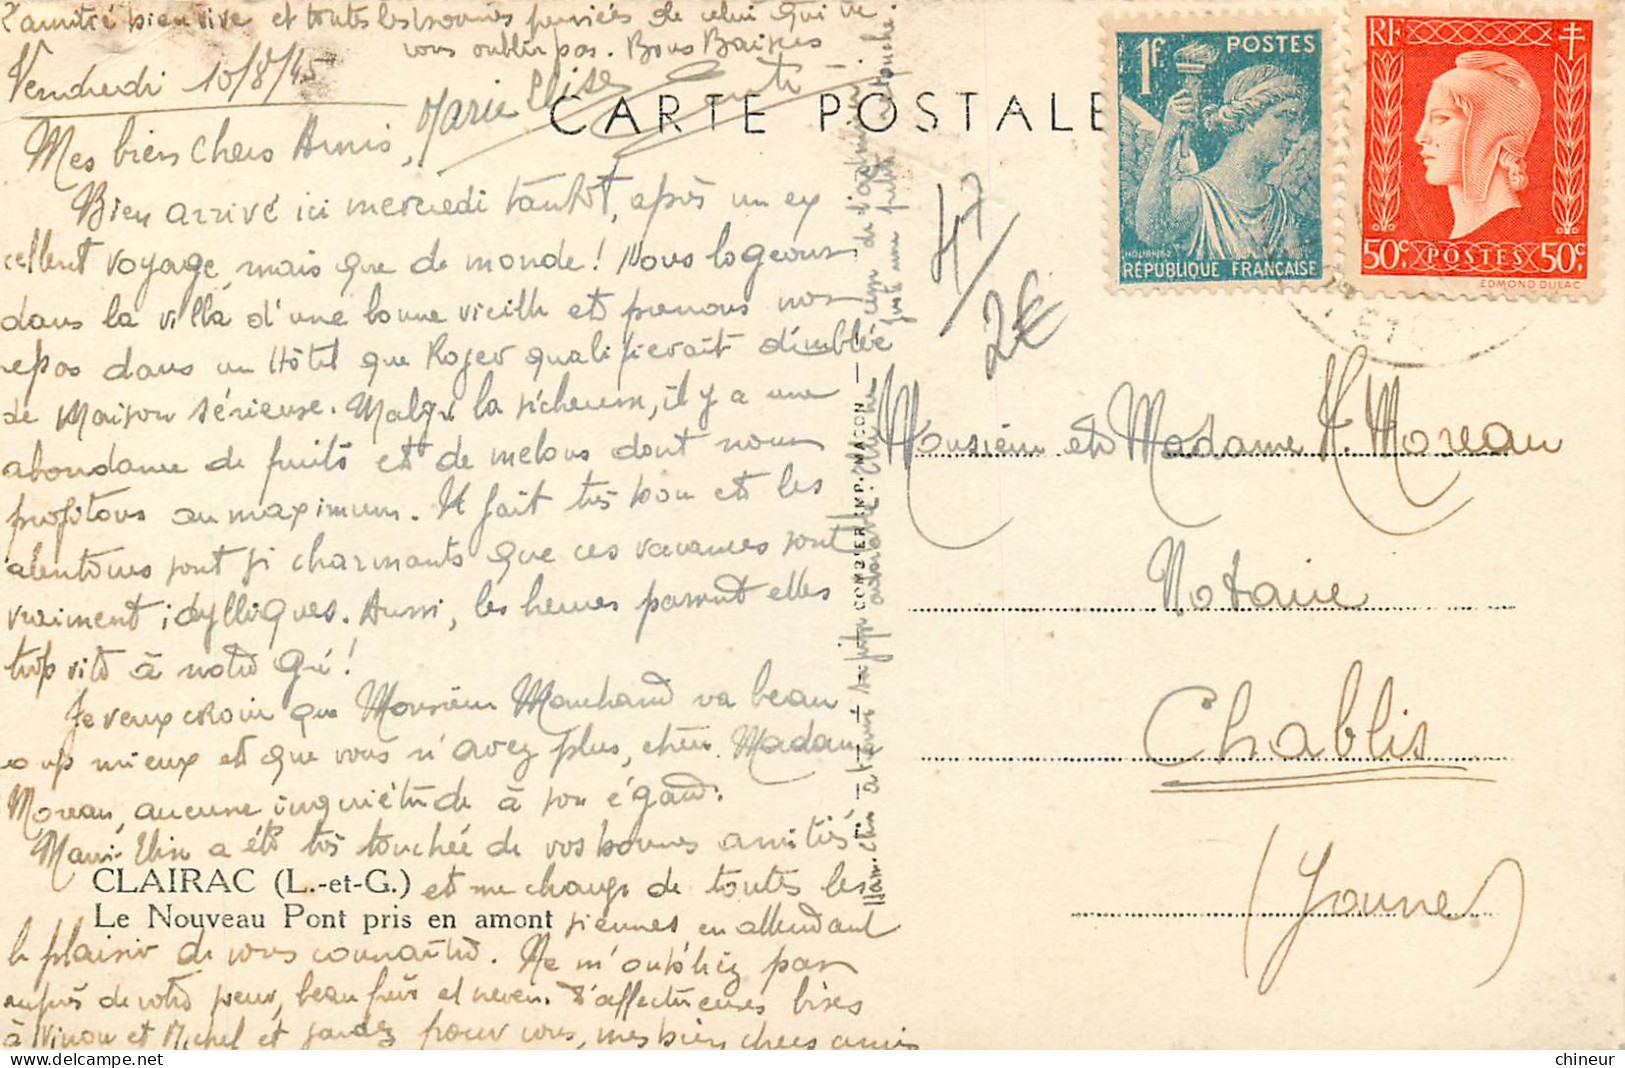 l'amitié bien vive et toutes les bonnes pensées de celui qui ne
vous oublie pas. Bons Baisers
Vendredi 10/8/45
Marie Elise
CARTE POSTALE
Mes bien chers Amis,
Bien arrivé ici mercredi tantôt, après un ex
cellent voyage, mais que de monde! Nous logeons
dans la villa d'une bonne vieille et prenons nos
repas dans un Hôtel que Roger qualifierait d'emblée
de Maison sérieuse. Malgré la sécheresse, il y a une
abondance de fruits et de melons dont nous
profitons au maximum. Il fait très bon et les
alentours sont si charmants que ces vacances sont
vraiment idylliques. Aussi, les heures passent elles
trop vite à notre gré!
Je veux croire que Monsieur Marchand va beau
coup mieux et que vous n'avez plus, chère Madame
Moreau, aucune inquiétude à son égard.
Marie-Elise a été très touchée de vos bonnes amitiés
CLAIRAC (L.-et-G.)
et me charge de toutes les
Le Nouveau Pont pris en amont
siennes en attendant
le plaisir de vous connaître. Ne m'oubliez pas
auprès de votre soeur, beau frère et neveu. D'affectueuses bises
à Ninou et Michel et gardez pour vous, mes bien chers amis
COMBIER IMP. MACON
47
2€
1F POSTES
RÉPUBLIQUE FRANÇAISE
RF
50c POSTES 50c
EDMOND DULAC
Monsieur et Madame H. Moreau
Notaire
Chablis
(Yonne)
chineur